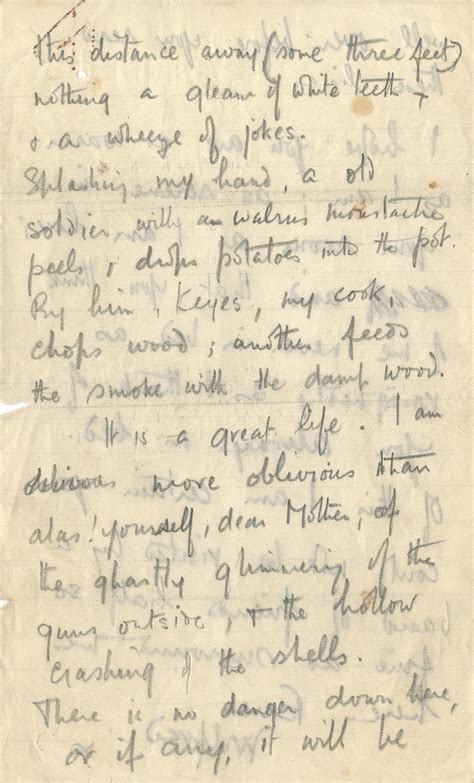 this distance away (some three feet)
nothing a gleam of white teeth &
& a wheeze of jokes.
Splashing my hand, a old
soldier with a walrus moustache
peels & drops potatoes into the pot.
By him, Keyes, my cook,
chops wood; another feeds
the smoke with the damp wood.
It is a great life. I am
more oblivious than
alas! yourself, dear Mother, of
the ghastly glimmering of the
guns outside, & the hollow
crashing of the shells.
There is no danger down here,
or if any, it will be